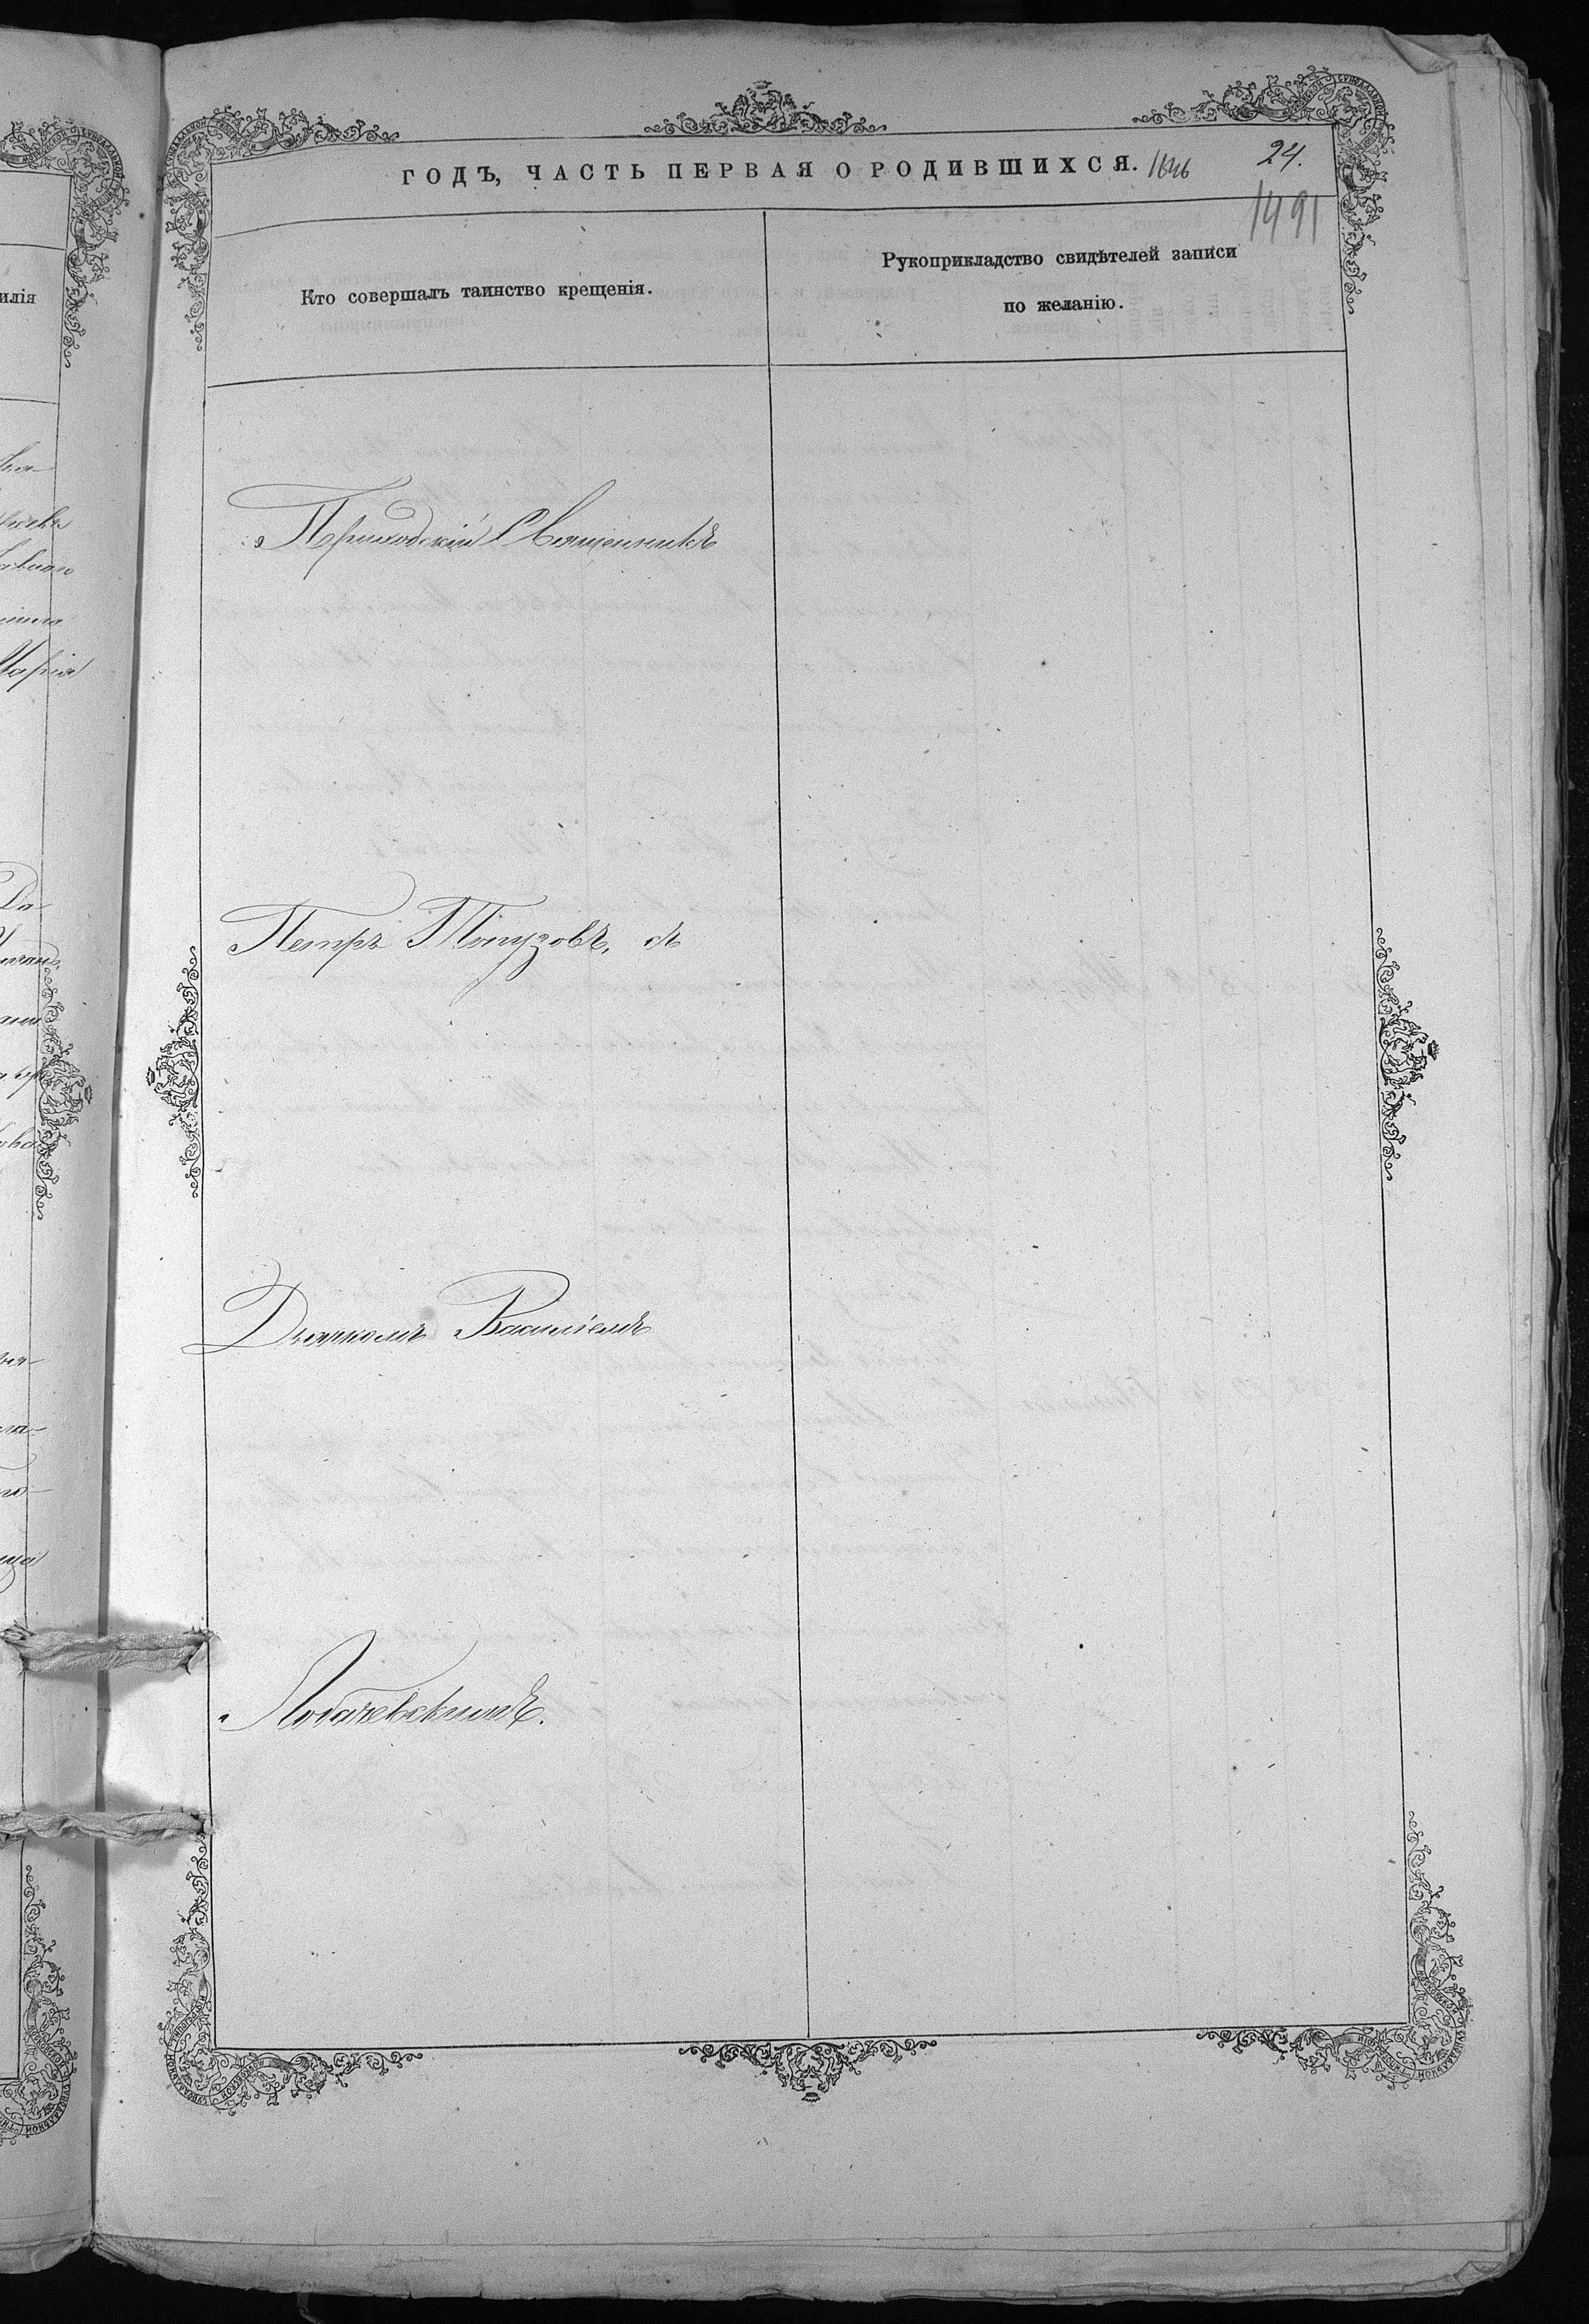 ГОДЪ, ЧАСТЬ ПЕРВАЯ О РОДИВШИХСЯ. 1646 24.
1491
Кто совершалъ таинство крещенія.
Рукоприкладство свидѣтелей записи
по желанію.
Приходскій Священникъ
Петръ Топузовъ, съ
Дьячкомъ Василіемъ
Лобачевскимъ.
илія
Марія